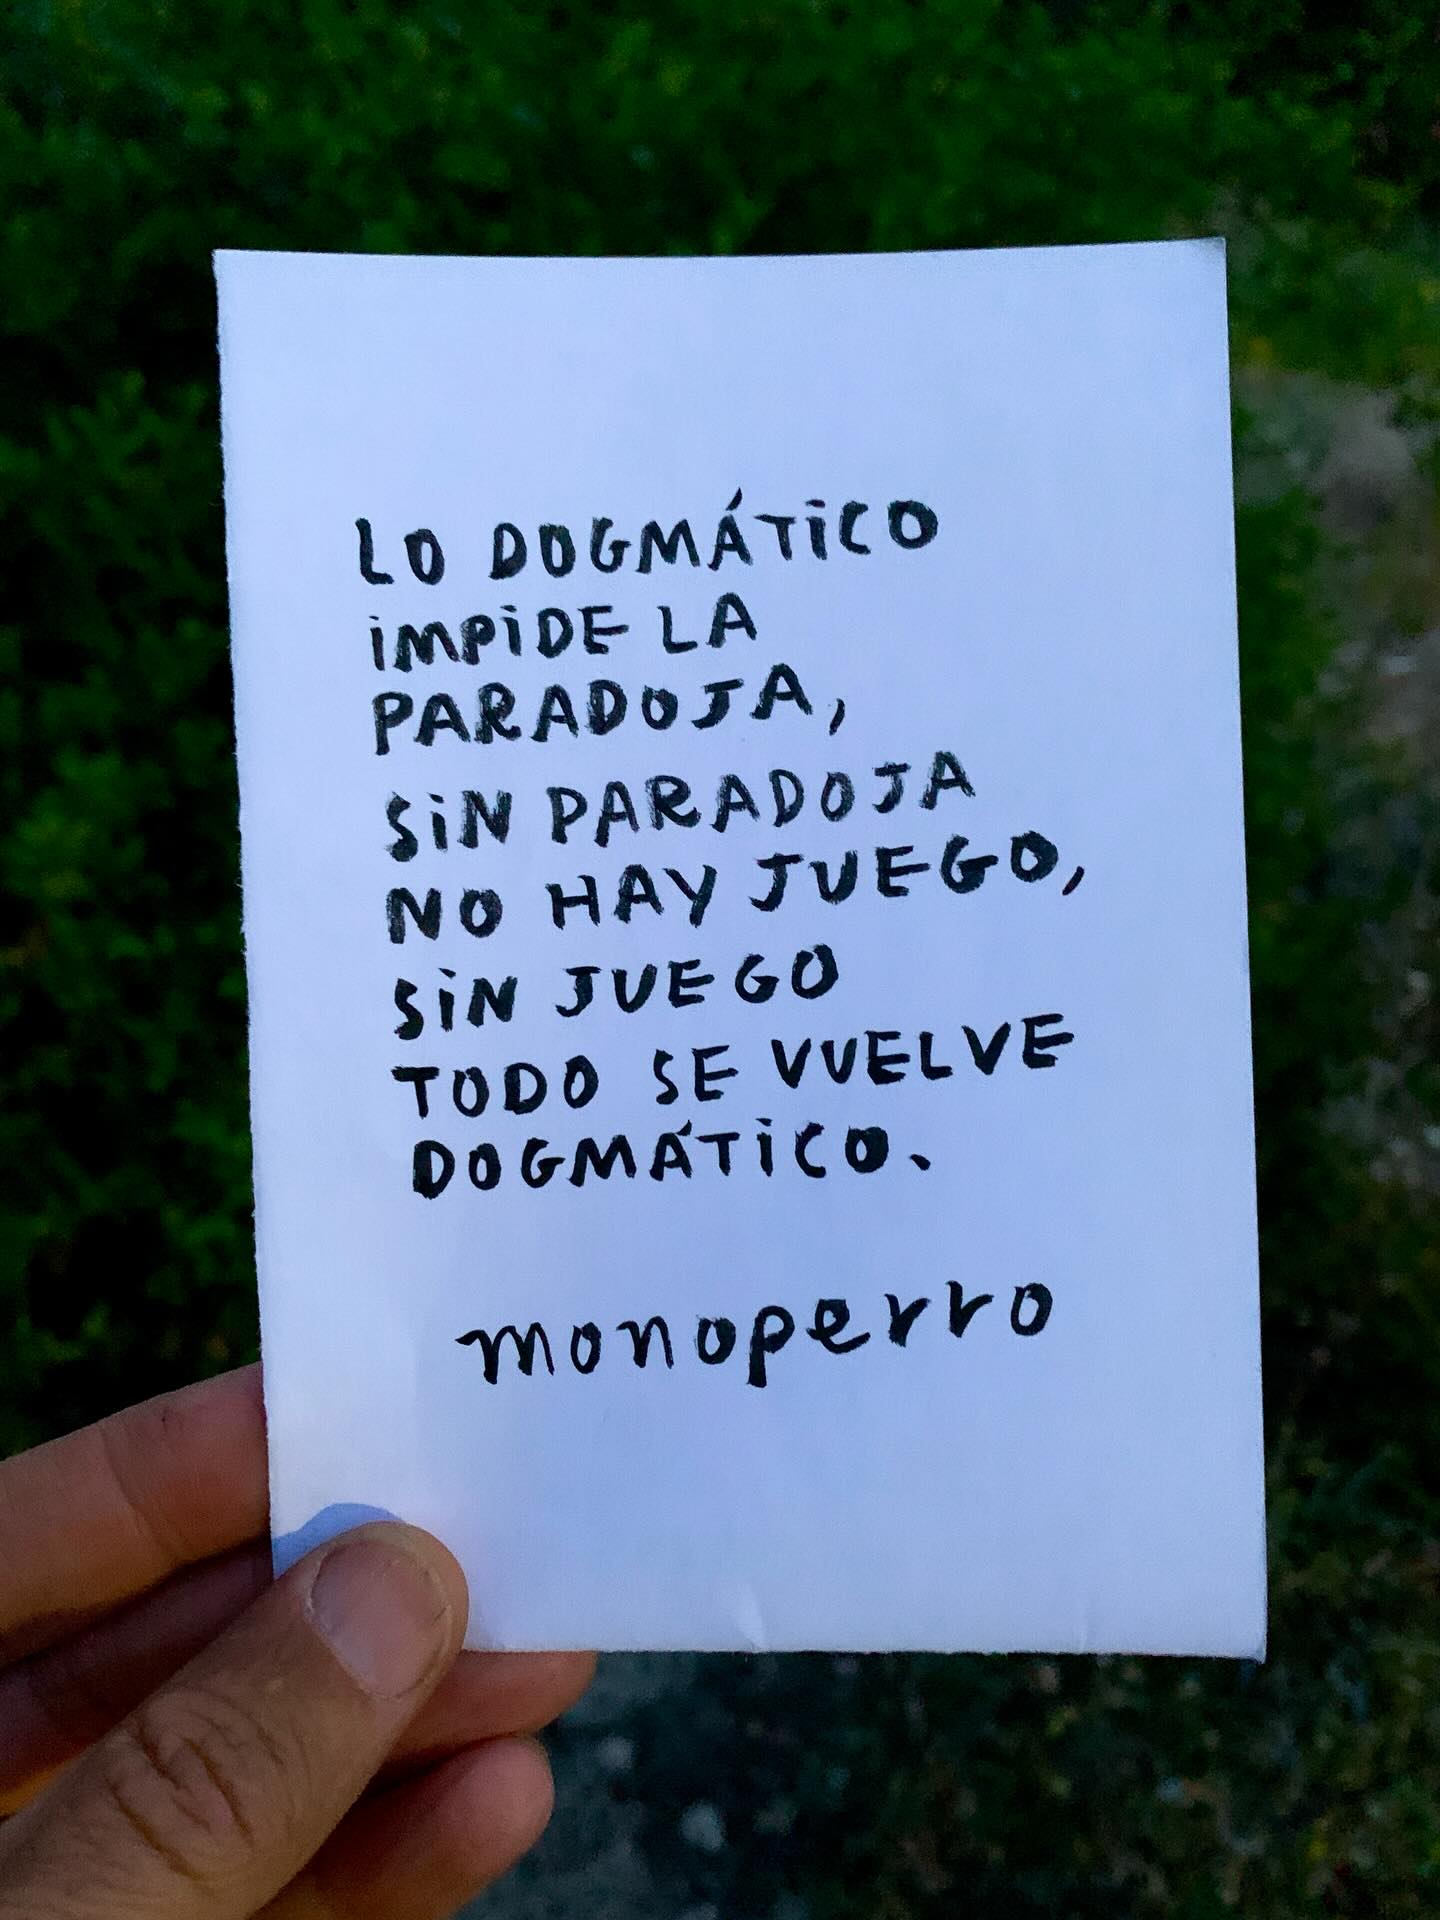 LO DOGMÁTiCO
iMPiDE LA
PARADOJA,
SiN PARADOJA
NO HAY JUEGO,
SiN JUEGO
TODO SE VUELVE
DOGMÁTiCO.
monoperro